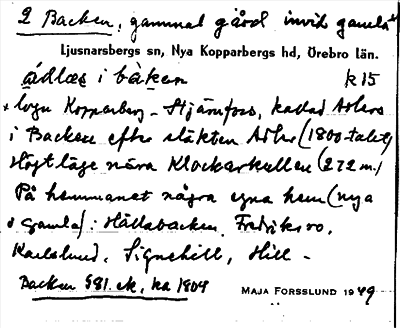 2 Backen, gammal gård invid gamla
Ljusnarsbergs sn, Nya Kopparbergs hd, Örebro län.
ádlœs i bàken k 15
Kopparberg - Stjärnfors, kallad Adlers
i Backen efter släkten Adler (1800-talet)
Högt läge nära Klockarkullen (272 m.)
På hemmanet några egna hem (nya
o gamla): Hällabacken, Fredriksro,
Karlslund, Signehill, Hill -
Backen 581 ek. ka 1804
MAJA FORSSLUND 1949